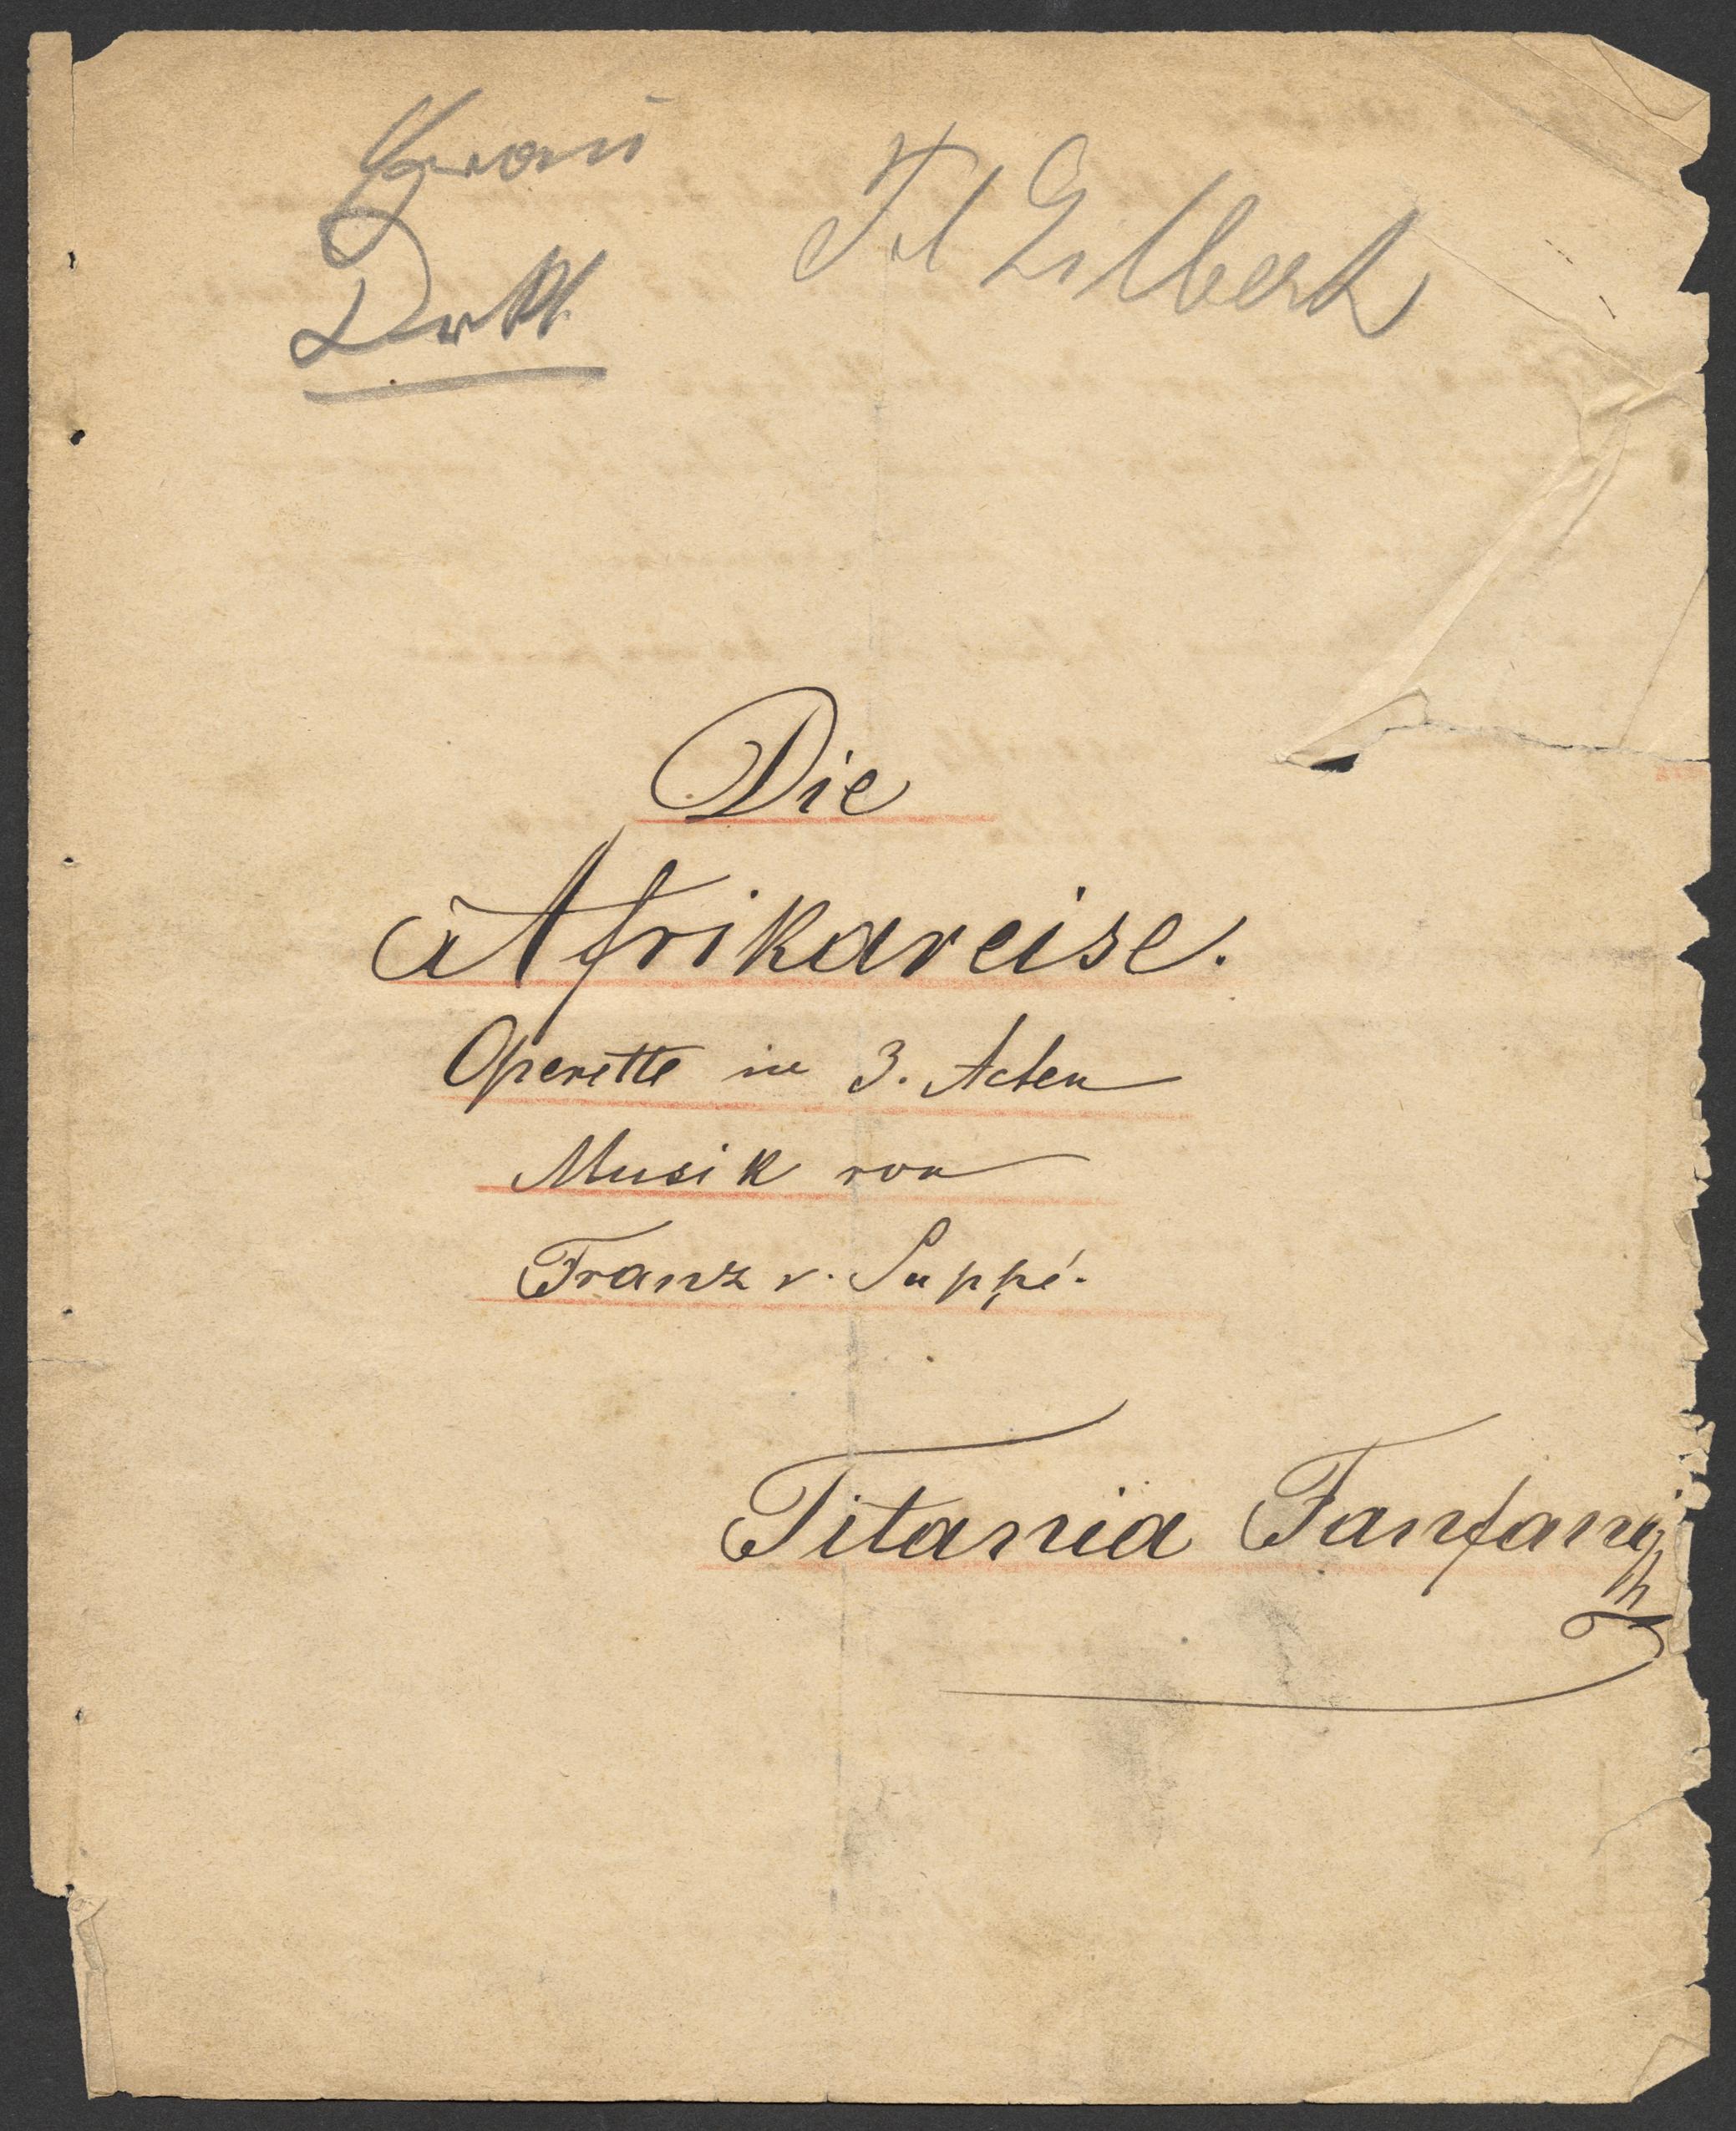 Frl Gilbert
Die
Afrikareise.
Operette in 3. Acten
Musik von
Franz v. Suppé.
Titania Fanfani